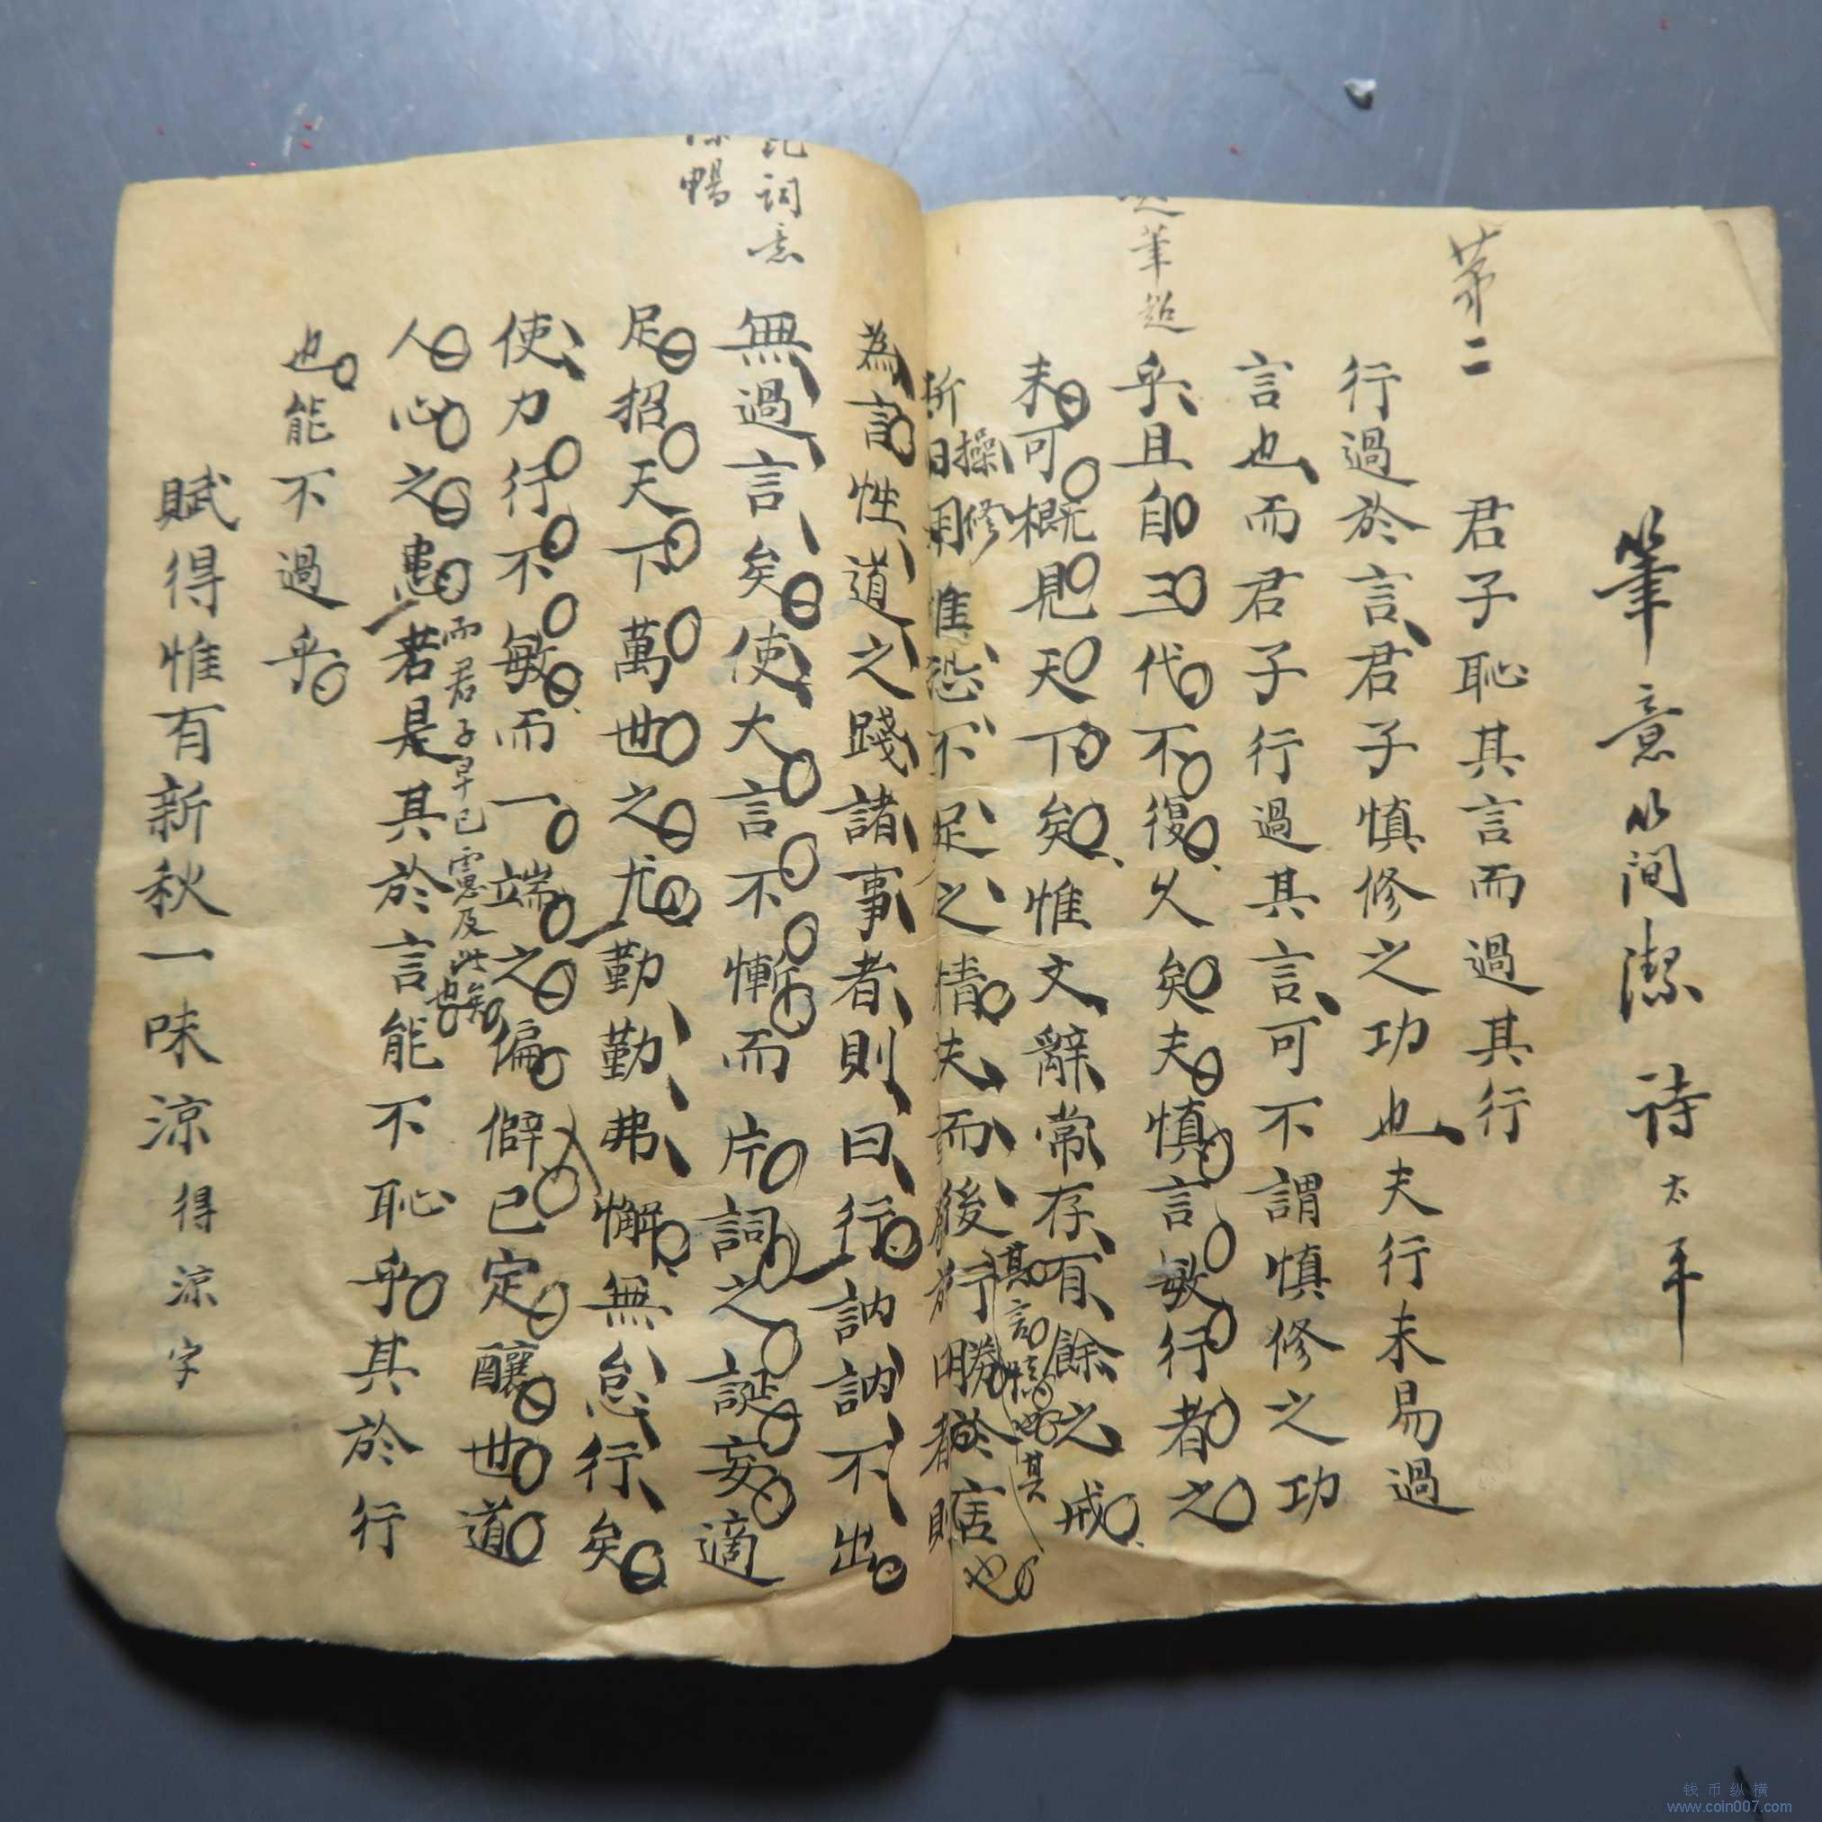 筆意簡潔 詩太平
第二
君子恥其言而過其行
行過於言君子慎修之功也夫行未易過
言也而君子行過其言可不謂慎修之功
起筆超
乎且自三代不復久矣夫慎言敏行者之
未可概見天下矣惟文辭常存有餘之戒
操修
惟恐不足之情夫而後行勝於言也
其言其
為言性道之踐諸事者則曰行訥訥不出
詞意
無過言矣使大言不慚而片詞之誕妄適
暢
足招天下萬世之尤勤勤弗懈無怠行矣
使力行不敏而一端之偏僻已定釀世道
人心之患若是其於言能不恥乎其於行
而君子早已慮及此矣
也能不過乎
賦得惟有新秋一味涼得涼字
钱币纵横
www.coin007.com